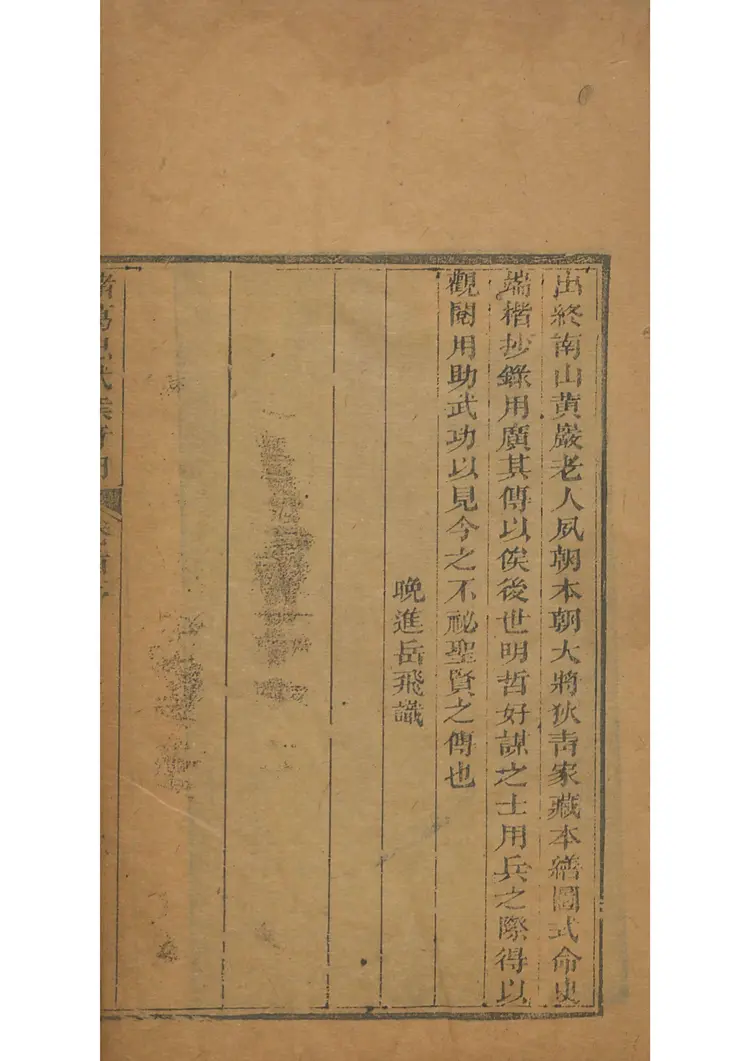 出終南山黃嚴老人夙朝本朝大將狄青家藏本繕圖式命史
端楷抄錄用廣其傳以俟後世明哲好謀之士用兵之際得以
觀閱用助武功以見今之不祕聖賢之傳也
晚進岳飛識
諸葛忠武侯